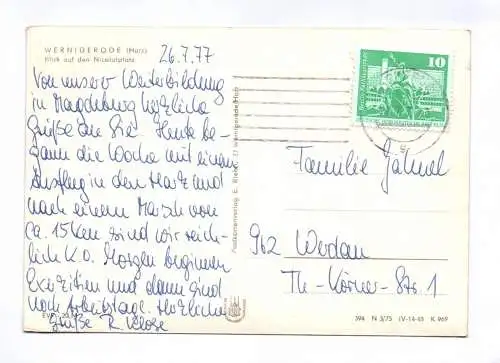 WERNIGERODE (Harz)
Blick auf den Nicolaiplatz
26.7.77
Von unserer Weiterbildung
in Magdeburg herzliche
Grüße an Sie. Heute be-
gann die Woche mit einem
Ausflug in den Harz und
nach einem Marsch von
ca. 15 km sind wir reich-
lich K.O. Morgen beginnen
Exerzitien und dann sind
noch Arbeitstage. Herzliche
Grüße R. Klose
EVP:
10
Familie
962 Werdau
Th.-Körner-Str. 1
394 N 3/75 IV-14-45 K 969